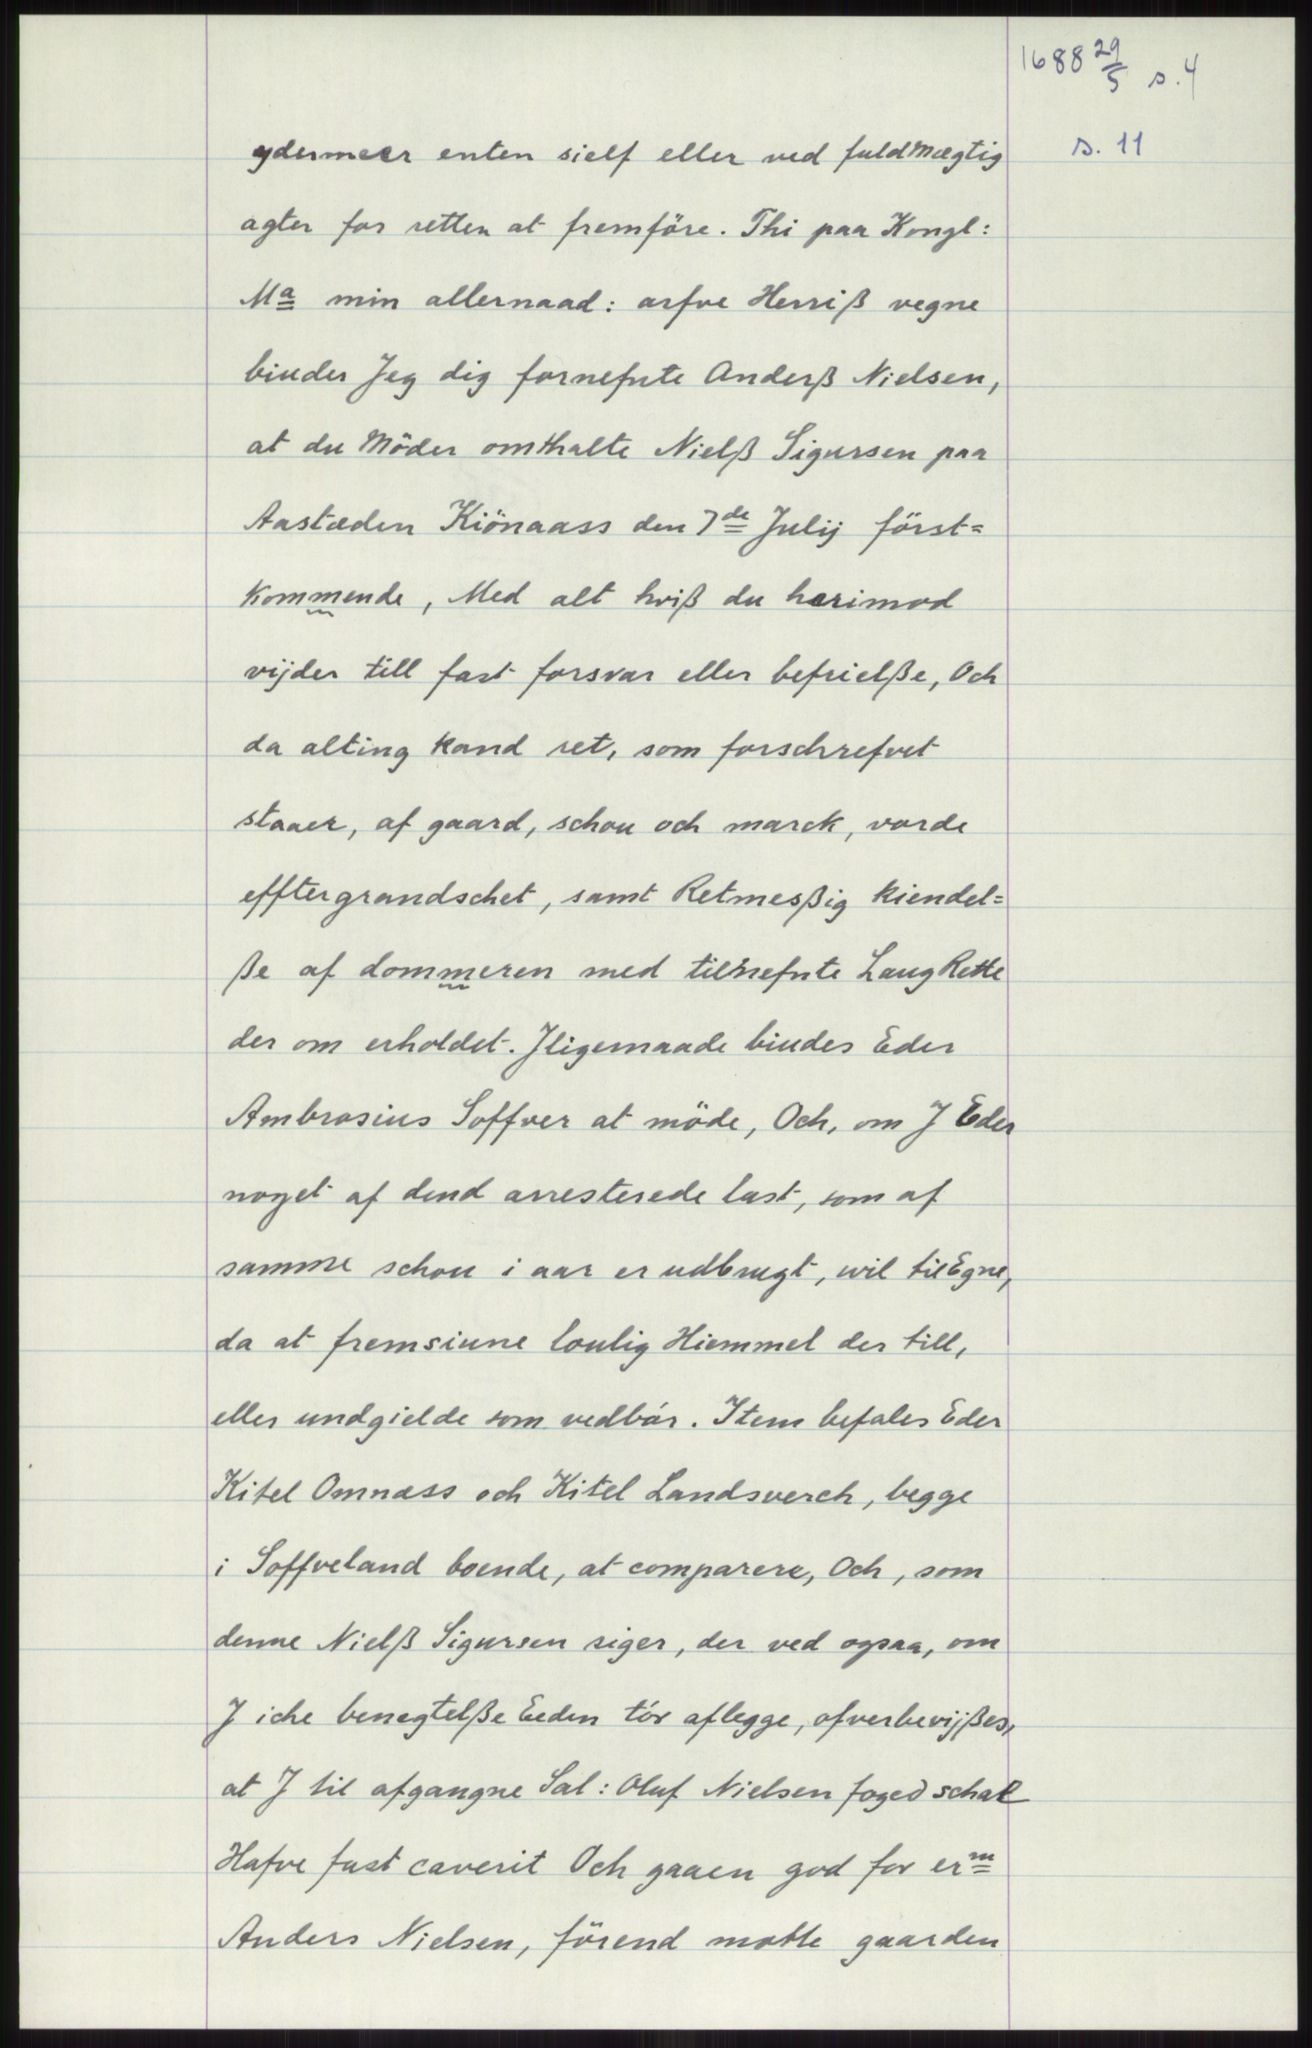 1688 29/5 s. 4
s. 11
ydermeer enten sielf eller ved fuldmægtig
agter for retten at fremföre. Thi paa Kongl:
Ma min allernaad: arfve Herriß vegne
biuder Jeg dig fornefnte Anderß Nielsen,
at du Möder omthalte Nielß Sigursen paa
Aastæden Kiönaass den 7de Julij först=
kommende, Med alt hviß du herimod
vijder till fast forsvar eller befrielße, Och
da alting kand ret, som forschrefvet
staaer, af gaard, schou och marck, vorde
efftergrandschet, samt Retmesßig kiendel=
ße af dommeren med tilnefnte LaugRette
der om erholdet. Jligemaade biudes Eder
Ambrosius Soffver at möde, Och, om J Eder
noget af dend arresterede last, som af
samme schou i aar er udbrugt, wil tilEgne,
da at fremsiune loulig Hiemmel der till,
eller undgielde som vedbör. Item befales Eder
Kitel Omnæss och Kitel Landsverch, begge
i Soffveland boende, at comparere, Och, som
denne Nielß Sigursen siger, der ved ogsaa, om
J iche benegtelße Eeden tör aflegge, ofverbevijßes,
at J til afgangne Sal: Oluf Nielsen foged schal
Hafve fast caverit Och gaaen god for erm
Anders Nielsen, förend motte gaarden